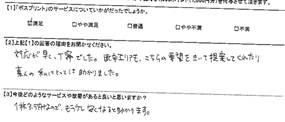 【1】「ポスプリント」のサービスについていかがだったでしょうか。
☑満足 □やや満足 □普通 □やや不満 □不満
【2】上記【1】の回答の理由をお聞かせください。
対応が早く、丁寧でした。
こちらの要望をきいて提案してくれたり
素人の私にとっては助かりました。
【3】今後どのようなサービスや改善があると良いと思いますか?
もう少し安くなると助かります。